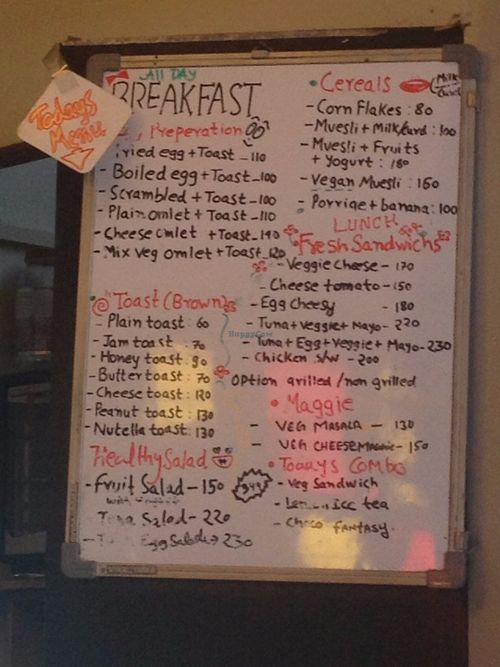 Todays
Menu
ALL DAY
BREAKFAST
Preperation
Fried egg + Toast - 110
- Boiled egg + Toast - 100
- Scrambled + Toast - 100
- Plain omlet + Toast - 110
- Cheese omlet + Toast - 140
- Mix veg omlet + Toast - 120
Toast (Brown)
- Plain toast : 60
- Jam toast : 70
- Honey toast : 80
- Butter toast : 70
- Cheese toast : 120
- Peanut toast : 130
- Nutella toast : 130
Healthy Salad
- Fruit Salad - 150
with
Tuna Salad - 220
- Egg Salad → 230
• Cereals (Milk
Curd)
- Corn Flakes : 80
- Muesli + Milk/curd : 100
- Muesli + Fruits
+ Yogurt : 180
- Vegan Muesli : 160
- Porrige + banana : 100
LUNCH
• Fresh Sandwichs
- Veggie cheese - 170
- Cheese tomato - 150
- Egg Cheesy - 180
- Tuna + Veggie + Mayo - 220
- Tuna + Egg + Veggie + Mayo - 230
- Chicken s/w - 200
Option grilled / non grilled
• Maggie
- VEG MASALA - 130
- VEG CHEESE MAGGIE - 150
• Todays COMBO
- Veg Sandwich
- Lemon Ice tea
- Choco FANTASY.
HappyCow